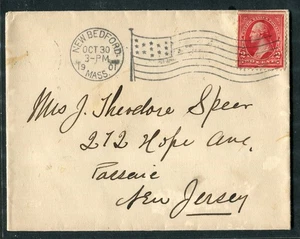 NEW BEDFORD
OCT 30
3-PM
19 01
MASS.
Mrs J Theodore Speer
212 Hope Ave,
Passaic
New Jersey